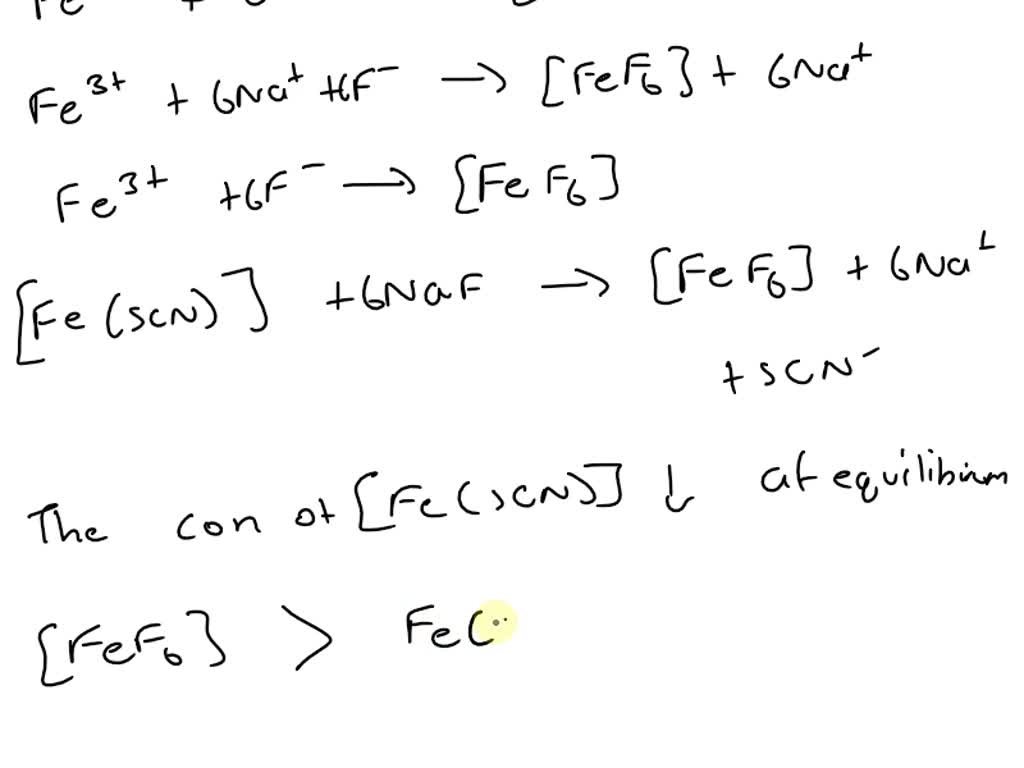 Fe³⁺ + 6Na⁺ + 6F⁻ → [FeF₆] + 6Na⁺
Fe³⁺ + 6F⁻ → [FeF₆]
[Fe(SCN)] + 6NaF → [FeF₆] + 6Na⁺
+ SCN⁻
The con of [Fe(SCN)] ↓ at equilibium
[FeF₆] > Fe(